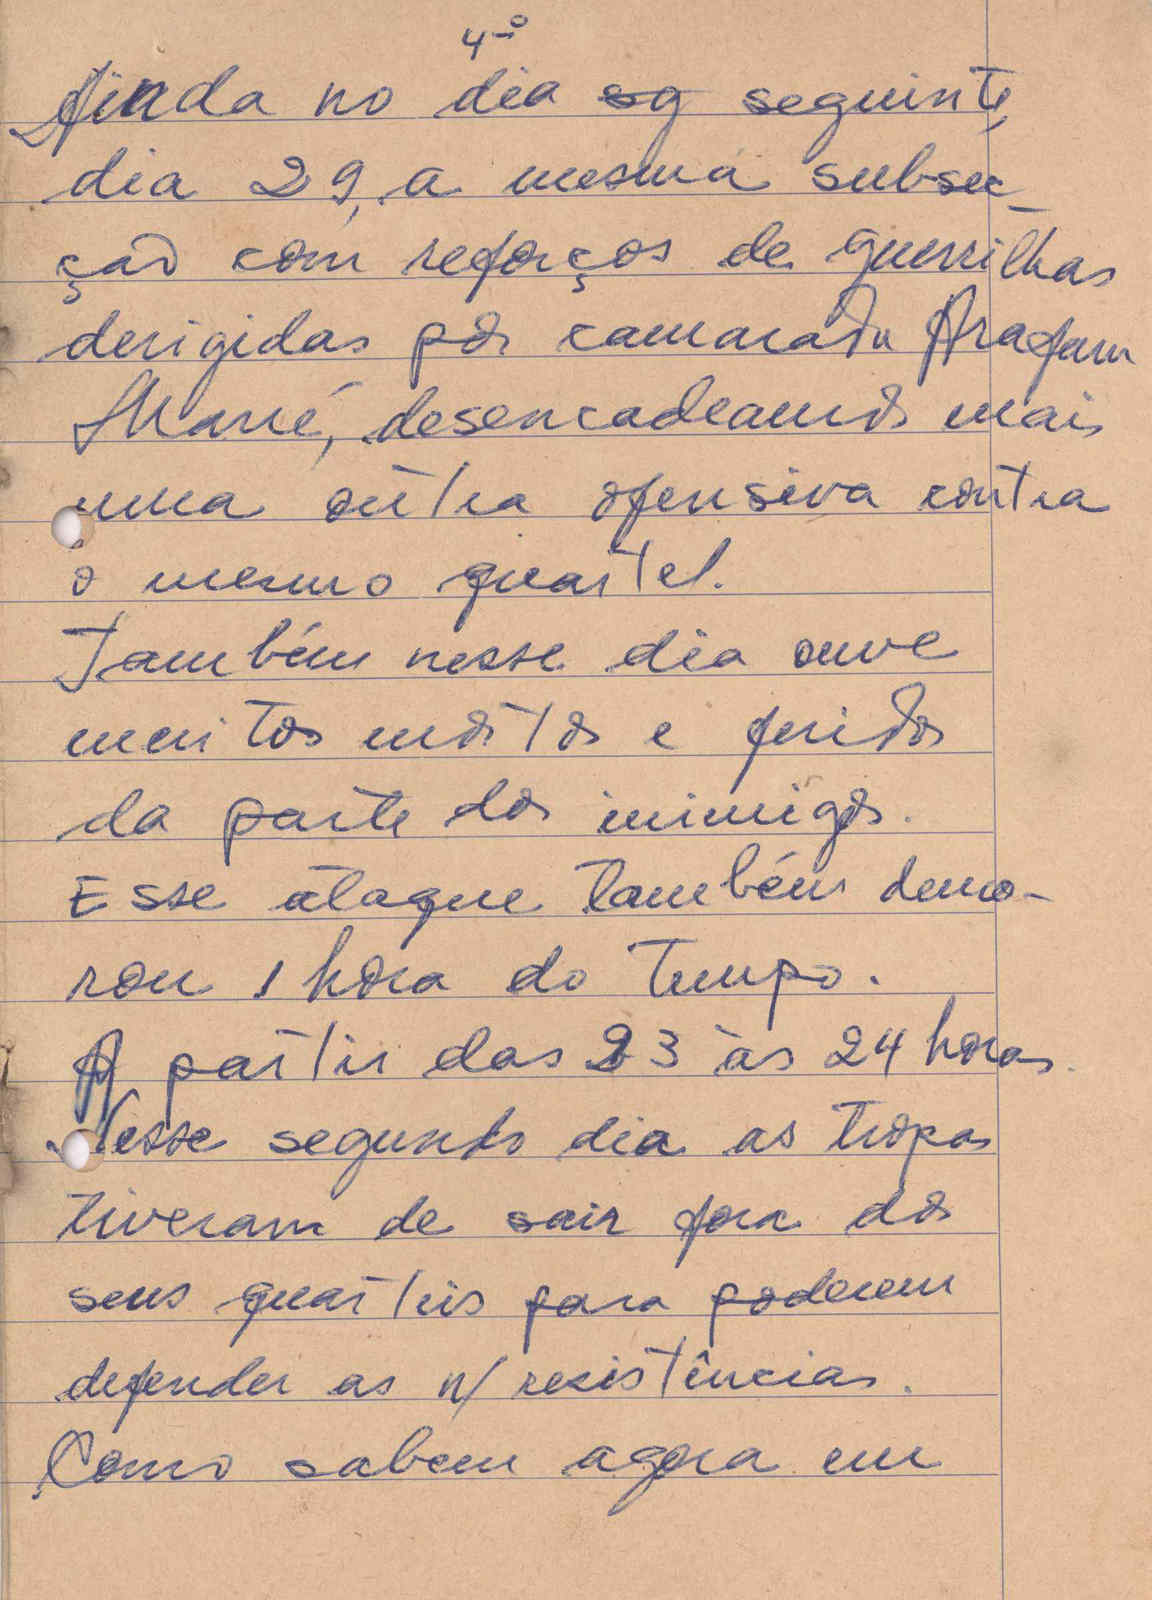 4º
Ainda no dia sg seguinte,
dia 29, a mesma subsec_
ção com reforços de guerrilhas
derigidas por camarada Arafam
Mané, desencadeamos mais
uma outra ofensiva contra
o mesmo quartel.
Também nesse dia ouve
muitos mortos e feridos
da parte dos inimigos.
Esse ataque também demo-
rou 1 hora do tempo.
A partir das 23 às 24 horas.
Nesse segundo dia as tropas
tiveram de sair fora dos
seus quarteis para poderem
defender as n/ resistências.
Como sabem agora em